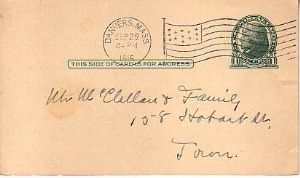 DANVERS, MASS
SEP 29
4-PM
1916
THIS SIDE OF CARD IS FOR ADDRESS
Mr McClellan & Family
158 Hobart St.
Town.